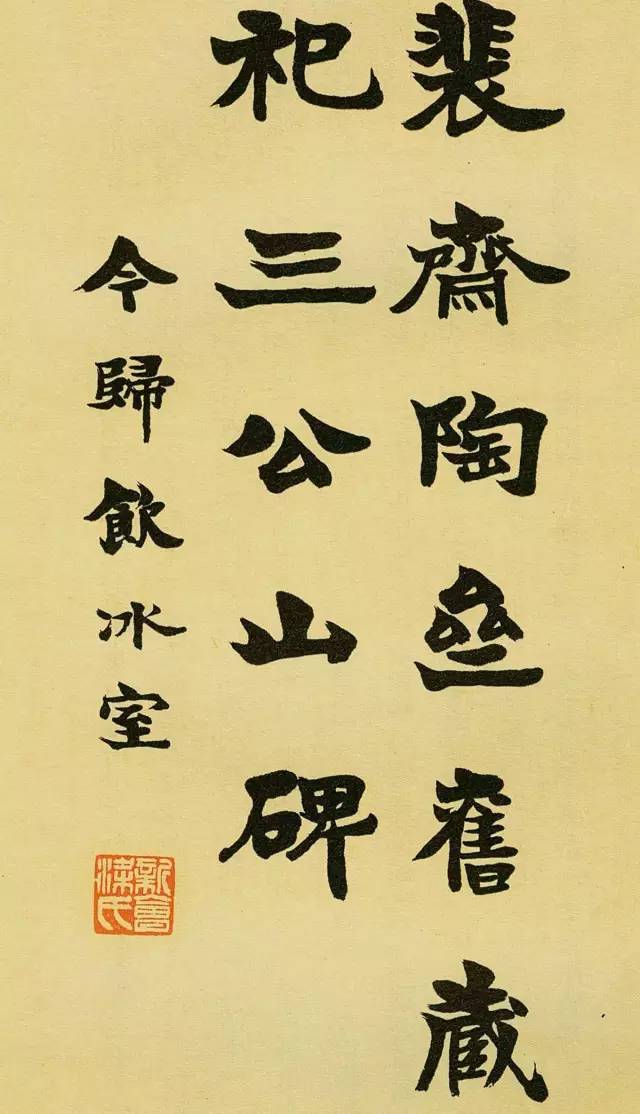 裴齋陶亝舊藏
祀三公山碑
今歸飲冰室
新會梁氏